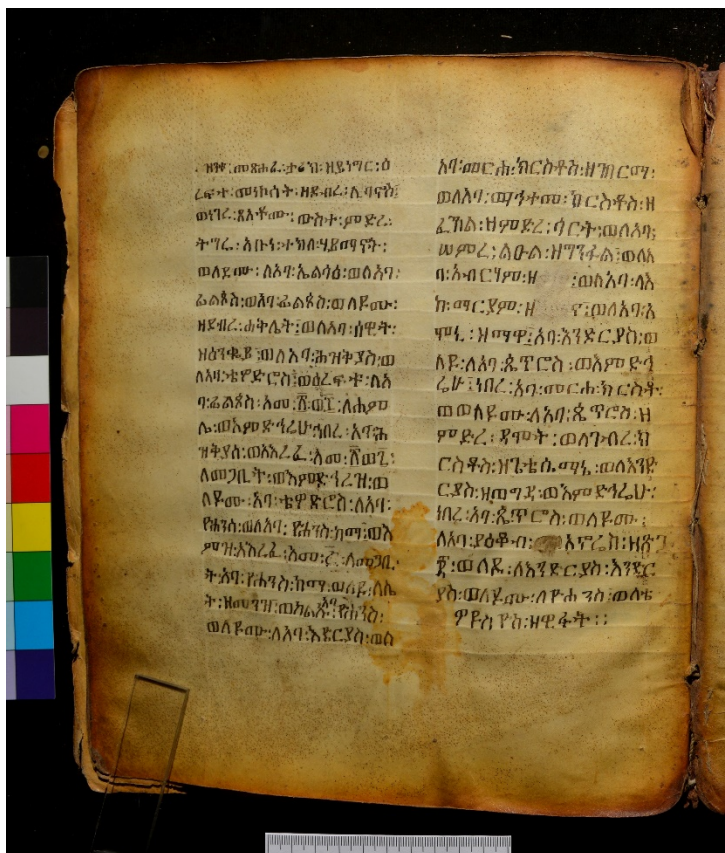 ዝንቱ፡መጽሐፈ፡ታሪክ፡ዘይነግር፡ዕ
ረፍተ፡መነኮሳት፡ዘደብረ፡ሊባኖስ፤
ውስተ፡ምድረ፡
ትግሬ፡አቡነ፡ተክለ፡ሃይማኖት፡
ወለደሙ፡ለአባ፡ኤልሳዕ፡ወለአባ፡
ፊልጶስ፡ወለአባ፡ፊልጶስ፡ወለዶሙ፡
ዘደብረ፡ሐቅሌት፡ወለአባ፡
ወለአባ፡ሕዝቅያስ፡ወ
ለአባ፡ቴዎድሮስ፤ወዕረፍቱ፡ለአ
ባ፡ፊልጶስ፡አመ፡ለሐም
ሌ፡ወእምድኅሬሁ፡ነበረ፡አባ፡ሕ
ዝቅያስ፡ወአእረፈ፡አመ፡
ለመጋቢት፡ወእምድኅሬዝ፡ወ
ለዶሙ፡አባ፡ቴዎድሮስ፡ለአባ፡
ዮሐንስ፡ወለአባ፡ዮሐንስ፡ከማ፡ወእ
ምዝ፡አእረፈ፡አመ፡ለመጋቢ
ት፡አባ፡ዮሐንስ፡ከማ፡ወለዶ፡
ዮሐንስ፡
ወለዶሙ፡ለአባ፡እድርያስ፡ወለ
አባ፡መርሐ፡ክርስቶስ፡
ወለአባ፡ማኅተመ፡ክርስቶስ፡ዘ
ዘምድረ፡ሳርት፡ወለአባ፡
ሠምረ፡ልዑል፡ዘግንፋል፤ወለአ
ባ፡አብርሃም፡ዘ ፤ወለአባ፡ላእ
ከ፡ማርያም፡ዘ ፤ወለአባ፡አ
ሞኒ፡ዘማዋ፤አባ፡እንድርያስ፡ወ
ለዶ፡ለአባ፡ጴጥሮስ፡ወእምድኅ
ሬሁ፤ነበረ፡አባ፡መርሐ፡ክርስቶ፡
ወወለዶሙ፡ለአባ፡ጴጥሮስ፡ዘ
ምድረ፡ዳሞት፡ወለገብረ፡ክ
ርስቶስ፡ዘጌቴሴማኒ፡ወለእንድ
ርያስ፡ዘጠግዳ፡ወእምድኅሬሁ፡
ነበረ፡አባ፡ጴጥሮስ፡ወለዶሙ፡
ለአባ፡ያዕቆብ፡አኖሬስ፡
ወለዶ፡ለእንድርያስ፡እንድር
ያስ፡ወለዶሙ፡ለዮሐንስ፡ወለቴ
ዎዶስዮስ፡ዘዊፋት፡፡